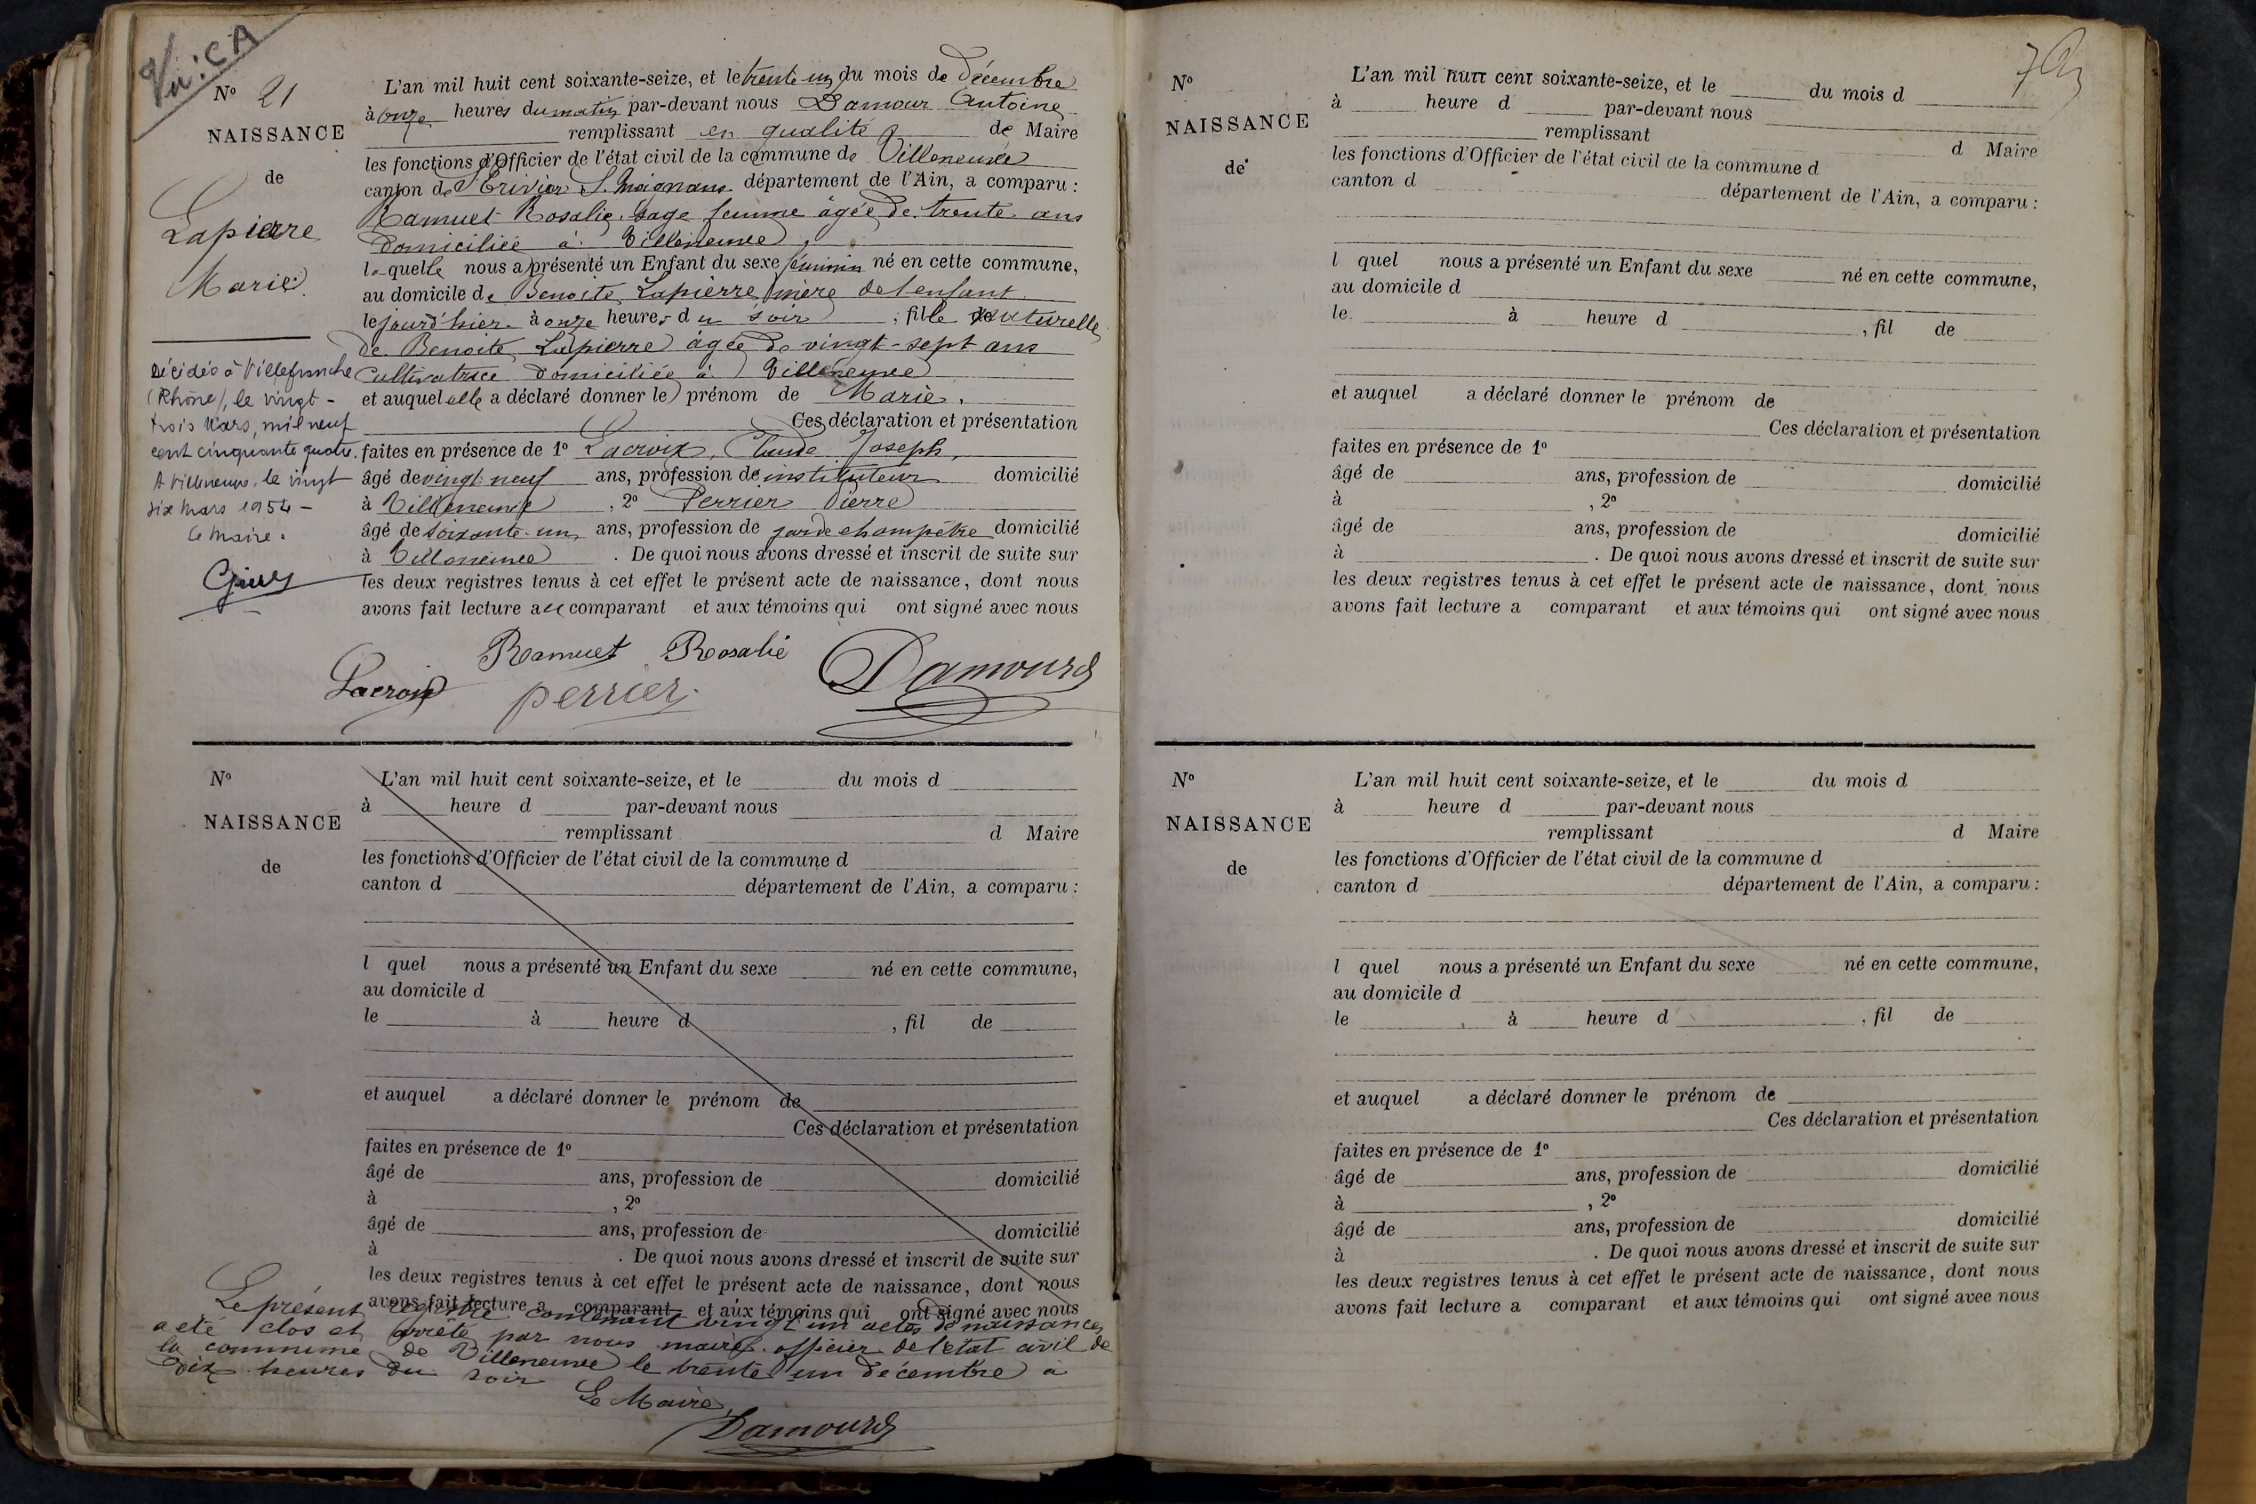 Vu: CA
N° 21
NAISSANCE
de
Lapierre
Marie
Décédée à Villefranche
(Rhône), le vingt-
trois Mars, mil neuf
cent cinquante quatre.
A Villeneuve, le vingt
six Mars 1954 -
Le Maire.
L'an mil huit cent soixante-seize, et le trente un du mois de Décembre
à onze heures du matin par-devant nous Damour Antoine
remplissant en qualité de Maire
les fonctions d'Officier de l'état civil de la commune de Villeneuve
canton de St Trivier S. Moignans département de l'Ain, a comparu :
Ramuet Rosalie, sage femme âgée de trente ans
domiciliée à Villeneuve,
laquelle nous a présenté un Enfant du sexe féminin né en cette commune,
au domicile de Benoite Lapierre mère de l'enfant
le jourd'hier à onze heures du soir, fille naturelle
de Benoite Lapierre âgée de vingt-sept ans
Cultivatrice domiciliée à Villeneuve
et auquel elle a déclaré donner le prénom de Marie.
Ces déclaration et présentation
faites en présence de 1° Lacroix, Claude Joseph,
âgé de vingt neuf ans, profession de instituteur domicilié
à Villeneuve, 2° Perrier Pierre
âgé de soixante-un ans, profession de garde champêtre domicilié
à Villeneuve. De quoi nous avons dressé et inscrit de suite sur
les deux registres tenus à cet effet le présent acte de naissance, dont nous
avons fait lecture au comparant et aux témoins qui ont signé avec nous
Ramuet Rosalie
Lacroix perrier Damour
N°
NAISSANCE
de
L'an mil huit cent soixante-seize, et le du mois d
à heure d par-devant nous
remplissant d Maire
les fonctions d'Officier de l'état civil de la commune d
canton d département de l'Ain, a comparu :
l quel nous a présenté un Enfant du sexe né en cette commune,
au domicile d
le à heure d , fil de
et auquel a déclaré donner le prénom de
Ces déclaration et présentation
faites en présence de 1°
âgé de ans, profession de domicilié
à , 2°
âgé de ans, profession de domicilié
à . De quoi nous avons dressé et inscrit de suite sur
les deux registres tenus à cet effet le présent acte de naissance, dont nous
avons fait lecture a comparant et aux témoins qui ont signé avec nous
Le présent registre contenant vingt un actes de naissances
a été clos et arrêté par nous maire officier de l'état civil de
la commune de Villeneuve le trente un décembre à
dix heures du soir
Le Maire,
Damour
N°
NAISSANCE
de
L'an mil huit cent soixante-seize, et le du mois d
à heure d par-devant nous
remplissant d Maire
les fonctions d'Officier de l'état civil de la commune d
canton d département de l'Ain, a comparu :
l quel nous a présenté un Enfant du sexe né en cette commune,
au domicile d
le à heure d , fil de
et auquel a déclaré donner le prénom de
Ces déclaration et présentation
faites en présence de 1°
âgé de ans, profession de domicilié
à , 2°
âgé de ans, profession de domicilié
à . De quoi nous avons dressé et inscrit de suite sur
les deux registres tenus à cet effet le présent acte de naissance, dont nous
avons fait lecture a comparant et aux témoins qui ont signé avec nous
N°
NAISSANCE
de
L'an mil huit cent soixante-seize, et le du mois d
à heure d par-devant nous
remplissant d Maire
les fonctions d'Officier de l'état civil de la commune d
canton d département de l'Ain, a comparu :
l quel nous a présenté un Enfant du sexe né en cette commune,
au domicile d
le à heure d , fil de
et auquel a déclaré donner le prénom de
Ces déclaration et présentation
faites en présence de 1°
âgé de ans, profession de domicilié
à , 2°
âgé de ans, profession de domicilié
à . De quoi nous avons dressé et inscrit de suite sur
les deux registres tenus à cet effet le présent acte de naissance, dont nous
avons fait lecture a comparant et aux témoins qui ont signé avec nous